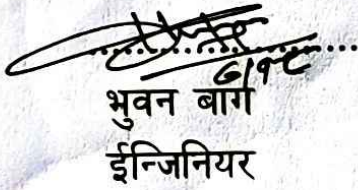 भुवन बाग
ईन्जिनियर